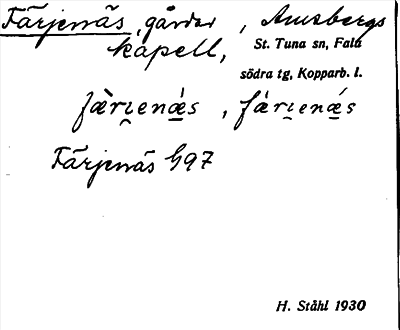 Färjenäs, gårdar, Amsbergs
kapell, St. Tuna sn, Falu
södra tg, Kopparb. l.
fä̀rɩ̯enä́s, fä̀rɩ̯enä́s
Färjenäs G97
H. Ståhl 1930